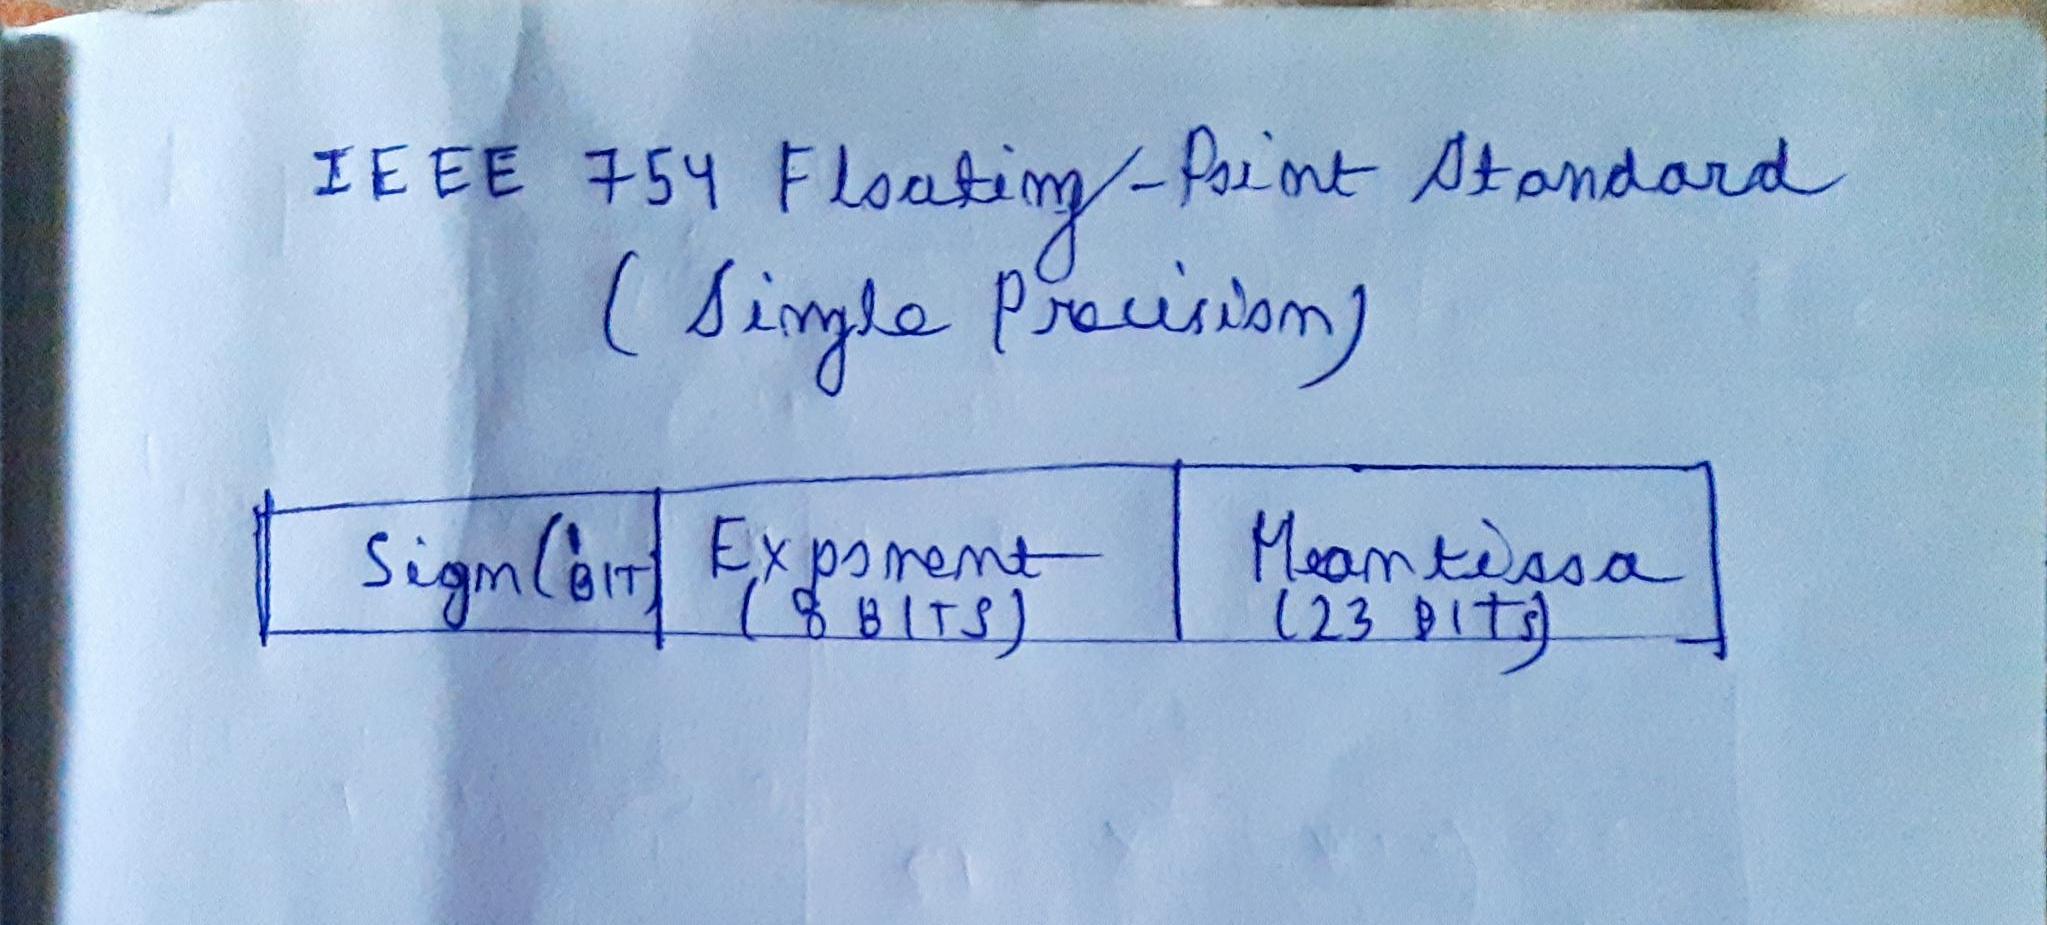 IEEE 754 Floating-Point Standard
(Single Precision)
Sign (1 BIT) Exponent Mantissa
(8 BITS) (23 BITS)